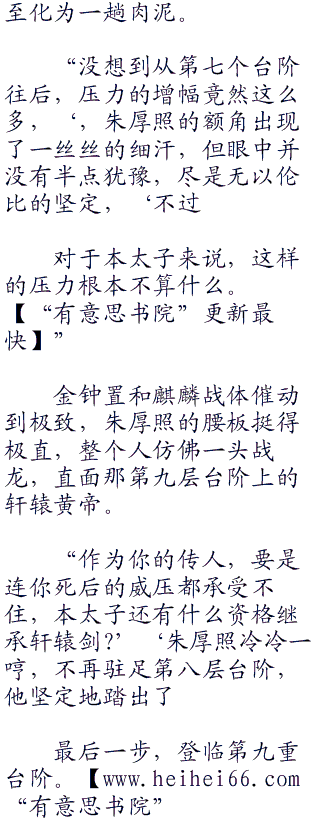 至化为一趟肉泥。
“没想到从第七个台阶
往后，压力的增幅竟然这么
多，‘，朱厚照的额角出现
了一丝丝的细汗，但眼中并
没有半点犹豫，尽是无以伦
比的坚定，‘不过
对于本太子来说，这样
的压力根本不算什么。
【“有意思书院”更新最
快】”
金钟置和麒麟战体催动
到极致，朱厚照的腰板挺得
极直，整个人仿佛一头战
龙，直面那第九层台阶上的
轩辕黄帝。
“作为你的传人，要是
连你死后的威压都承受不
住，本太子还有什么资格继
承轩辕剑?’‘朱厚照冷冷一
哼，不再驻足第八层台阶，
他坚定地踏出了
最后一步，登临第九重
台阶。【www.heihei66.com
“有意思书院”